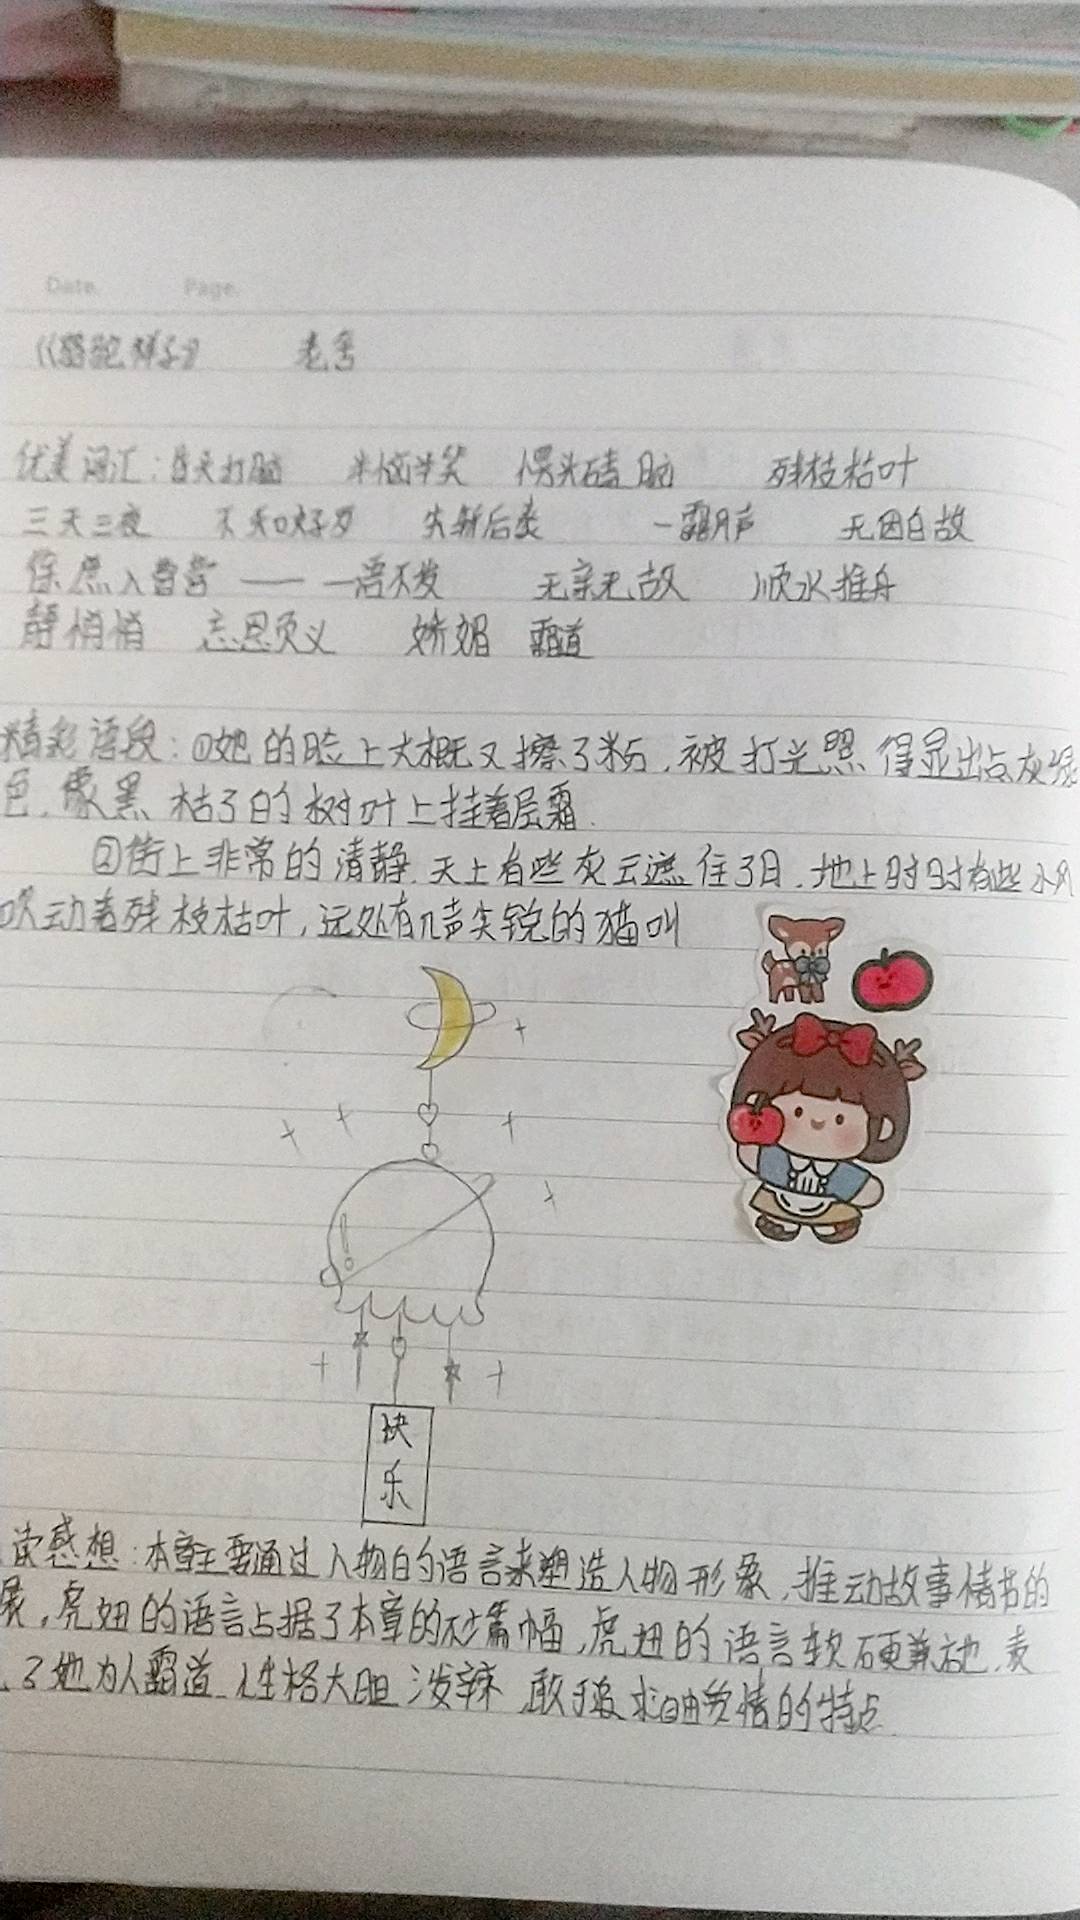 Date. Page.
《骆驼祥子》 老舍
优美词汇: 昏天打脑 半恼半笑 愣头磕脑 残枝枯叶
三天三夜 不知好歹 尖嘴后类 一露月声 无因白故
一语不发 无亲无故 顺水推舟
静悄悄 忘恩负义 娇媚 霸道
精彩语段: ①她的脸上大概又擦了粉, 被打光照得显出点灰绿
色, 像黑枯了的树叶上挂着层霜.
②街上非常的清静, 天上有些灰云遮住了月, 地上时时有些小风
吹动着残枝枯叶, 远处有几声尖锐的猫叫
快
乐
读感想: 本章主要通过人物的语言来塑造人物形象, 推动故事情节的
展, 虎妞的语言占据了本章的不少篇幅, 虎妞的语言软硬兼施, 表
了她为人霸道、性格大胆泼辣, 敢于追求自由爱情的特点.